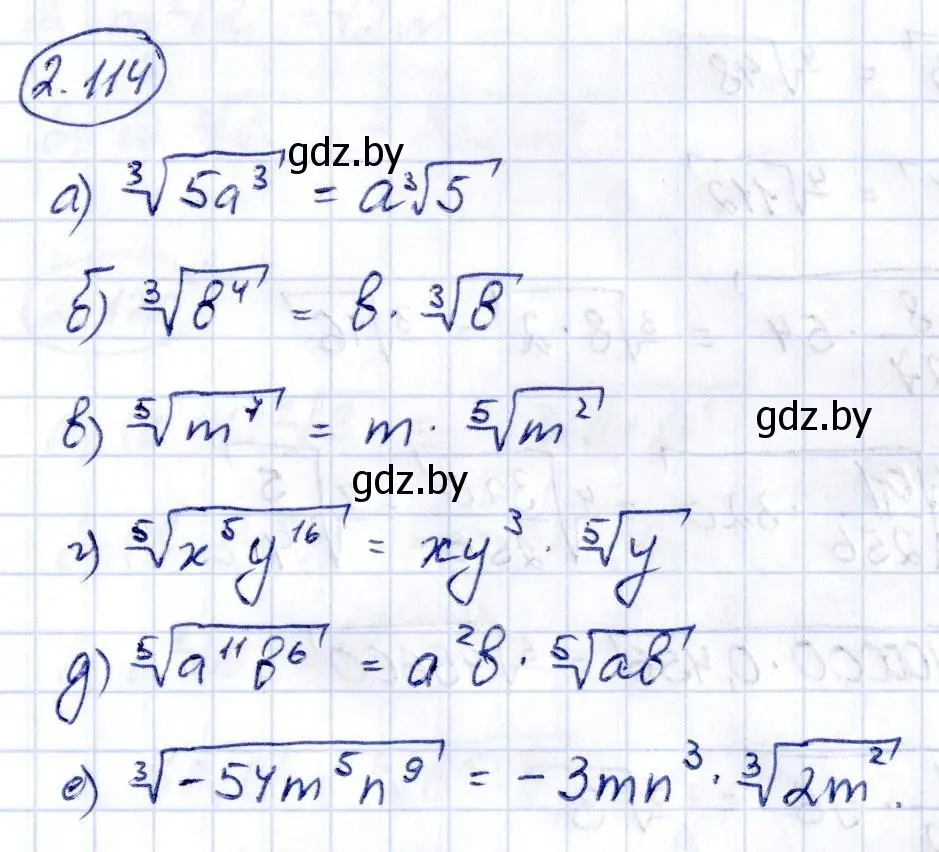 2.114
а) ∛(5a³) = a∛5
gdz.by
б) ∛(b⁴) = b · ∛b
в) ⁵√(m⁷) = m · ⁵√(m²)
gdz.by
gdz.by
г) ⁵√(x⁵y¹⁶) = xy³ · ⁵√y
д) ⁵√(a¹¹b⁶) = a²b · ⁵√(ab)
е) ∛(-54m⁵n⁹) = -3mn³ · ∛(2m²).